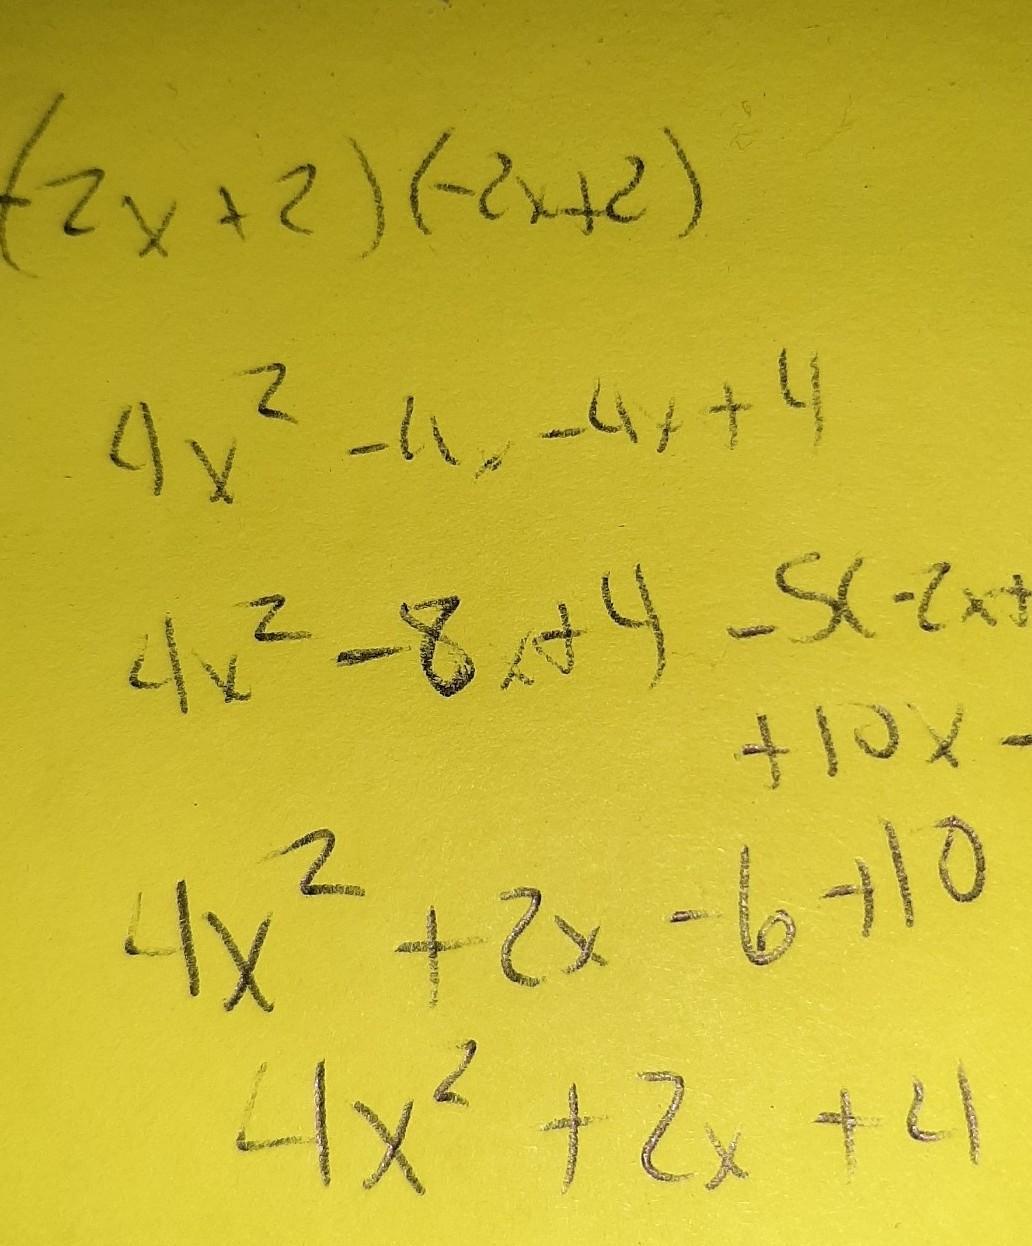 (-2x+2)(-2x+2)
4x² -4x -4x +4
4x² -8x+4 -5(-2x+
+10x -
4x² +2x -6 +10
4x² +2x +4